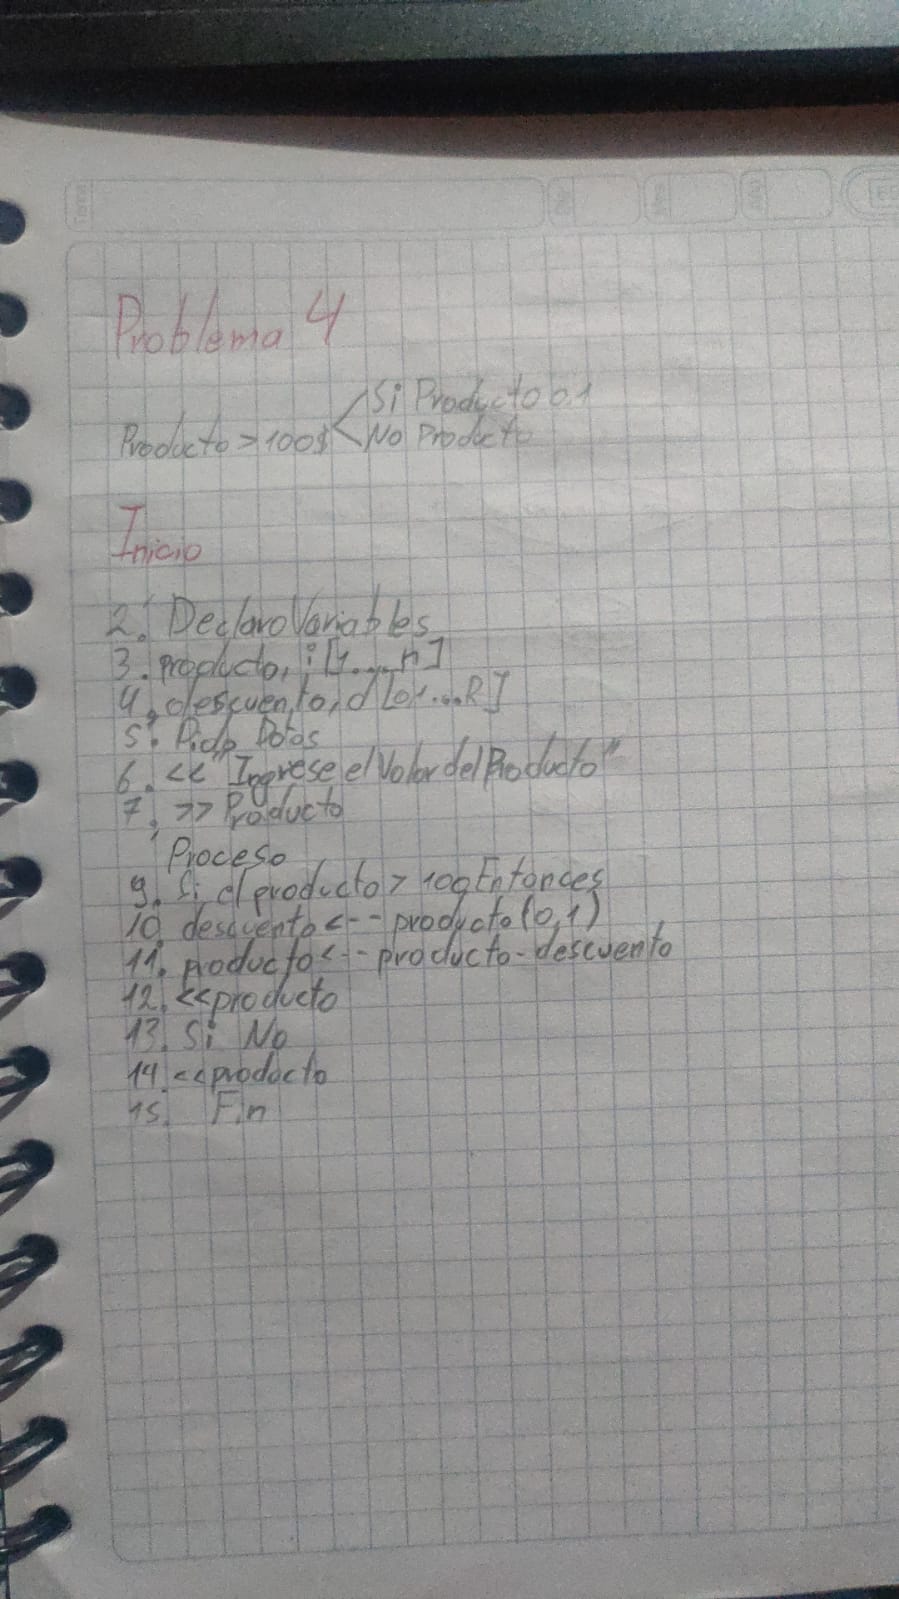 Tema
Día
Mes
Año
Problema 4
Si Producto 0.1
Producto > 100$
No Producto
Inicio
2. Declaro Variables
3. producto, i [1....n]
4. descuento, d [0,1...R]
5. Pido Datos
6. << "Ingrese el Valor del Producto"
7. >> Producto
Proceso
9. Si el producto > 100 Entonces
10. descuento <-- producto (0,1)
11. producto <-- producto - descuento
12. << producto
13. Si No
14 << producto
15. Fin